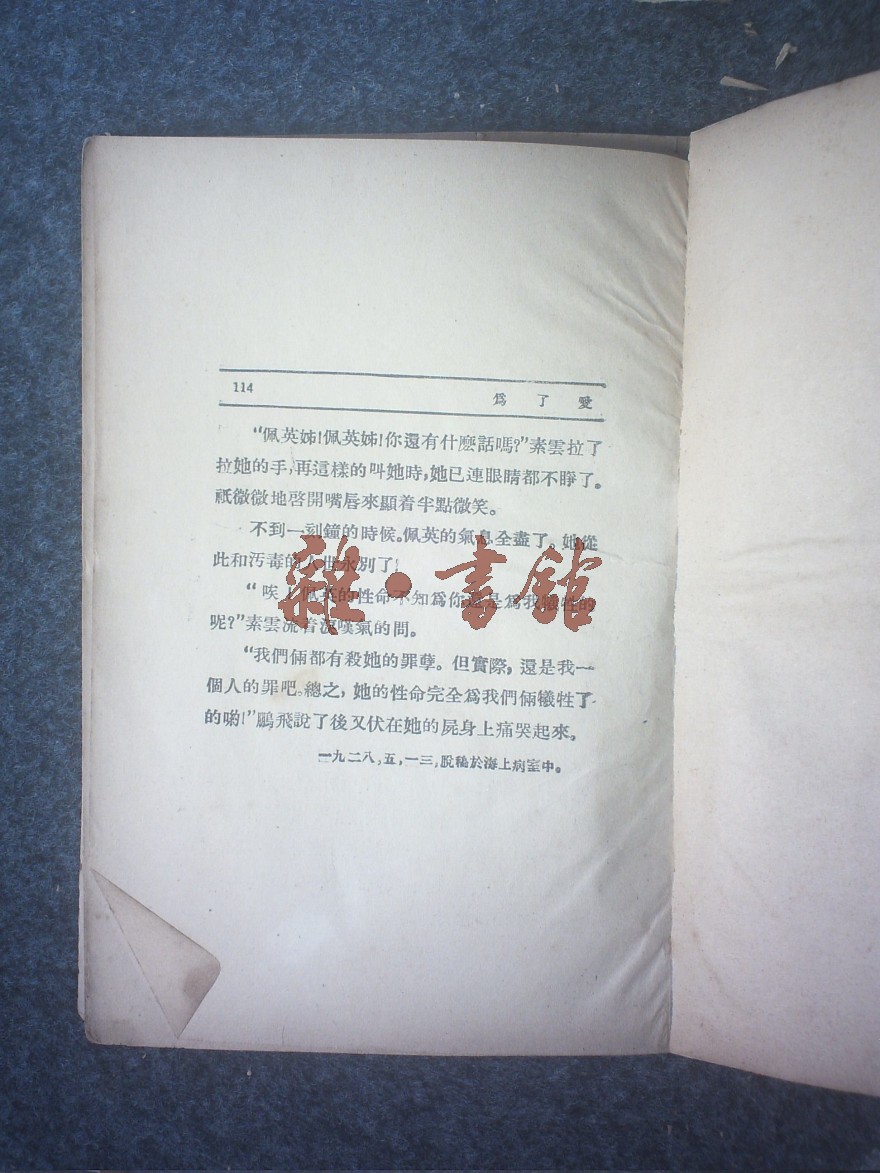 114
爲了愛
“佩英姊!佩英姊!你還有什麽話嗎?”素雲拉了
拉她的手,再這樣的叫她時,她已連眼睛都不睜了。
祇微微地啓開嘴唇來顯着半點微笑。
不到一刻鐘的時候。佩英的氣息全盡了。她從
此和汚毒的人世永別了!
“唉!佩英的性命不知爲你還是爲我犧牲的
呢?”素雲流着淚嘆氣的問。
“我們倆都有殺她的罪孽。但實際,還是我一
個人的罪吧。總之,她的性命完全爲我們倆犧牲了
的喲!”鵬飛說了後又伏在她的屍身上痛哭起來。
一九二八,五,一三,脫稿於海上病室中。
雜·書館